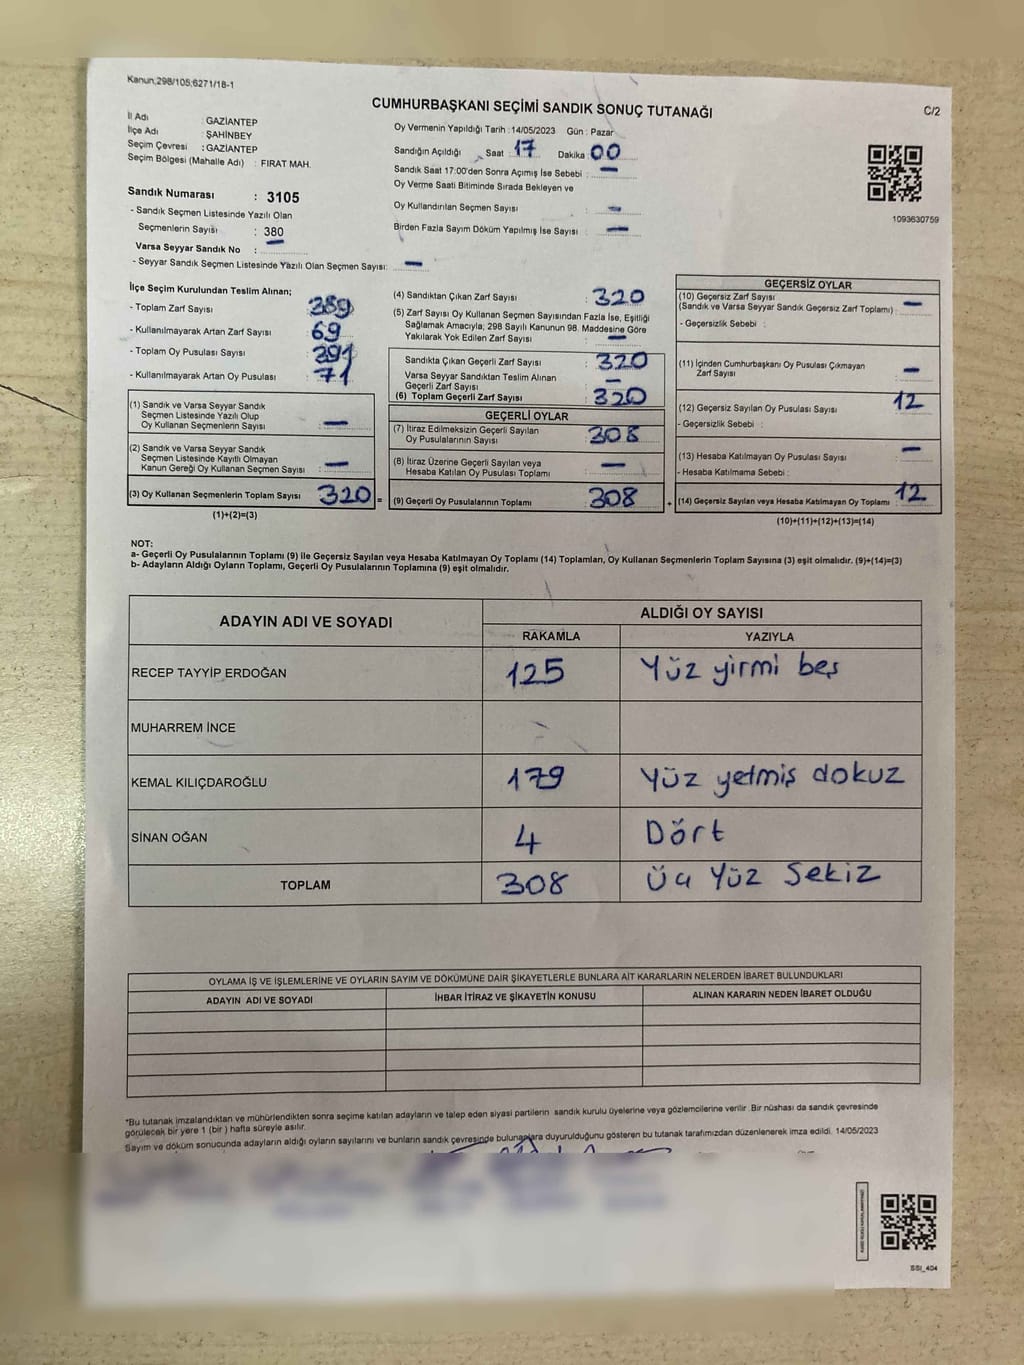 Kanun:298/105;6271/18-1
CUMHURBAŞKANI SEÇİMİ SANDIK SONUÇ TUTANAĞI
C/2
İl Adı : GAZİANTEP
İlçe Adı : ŞAHİNBEY
Seçim Çevresi : GAZİANTEP
Seçim Bölgesi (Mahalle Adı) : FIRAT MAH.
Sandık Numarası : 3105
- Sandık Seçmen Listesinde Yazılı Olan
Seçmenlerin Sayısı : 380
Varsa Seyyar Sandık No : —
- Seyyar Sandık Seçmen Listesinde Yazılı Olan Seçmen Sayısı: —
Oy Vermenin Yapıldığı Tarih : 14/05/2023 Gün : Pazar
Sandığın Açıldığı Saat : 17 Dakika : 00
Sandık Saat 17:00'den Sonra Açımış İse Sebebi : —
Oy Verme Saati Bitiminde Sırada Bekleyen ve
Oy Kullandırılan Seçmen Sayısı : —
Birden Fazla Sayım Döküm Yapılmış İse Sayısı : —
1093630759
İlçe Seçim Kurulundan Teslim Alınan;
- Toplam Zarf Sayısı : 389
- Kullanılmayarak Artan Zarf Sayısı : 69
- Toplam Oy Pusulası Sayısı : 391
- Kullanılmayarak Artan Oy Pusulası : 71
(1) Sandık ve Varsa Seyyar Sandık
Seçmen Listesinde Yazılı Olup
Oy Kullanan Seçmenlerin Sayısı : —
(2) Sandık ve Varsa Seyyar Sandık
Seçmen Listesinde Kayıtlı Olmayan
Kanun Gereği Oy Kullanan Seçmen Sayısı : —
(3) Oy Kullanan Seçmenlerin Toplam Sayısı : 320 =
(1)+(2)=(3)
(4) Sandıktan Çıkan Zarf Sayısı : 320
(5) Zarf Sayısı Oy Kullanan Seçmen Sayısından Fazla İse, Eşitliği
Sağlamak Amacıyla; 298 Sayılı Kanunun 98. Maddesine Göre
Yakılarak Yok Edilen Zarf Sayısı : —
Sandıkta Çıkan Geçerli Zarf Sayısı : 320
Varsa Seyyar Sandıktan Teslim Alınan
Geçerli Zarf Sayısı : —
(6) Toplam Geçerli Zarf Sayısı : 320
GEÇERLİ OYLAR
(7) İtiraz Edilmeksizin Geçerli Sayılan
Oy Pusulalarının Sayısı : 308
(8) İtiraz Üzerine Geçerli Sayılan veya
Hesaba Katılan Oy Pusulası Toplamı : —
(9) Geçerli Oy Pusulalarının Toplamı : 308 +
GEÇERSİZ OYLAR
(10) Geçersiz Zarf Sayısı
(Sandık ve Varsa Seyyar Sandık Geçersiz Zarf Toplamı) : —
- Geçersizlik Sebebi :
(11) İçinden Cumhurbaşkanı Oy Pusulası Çıkmayan
Zarf Sayısı : —
(12) Geçersiz Sayılan Oy Pusulası Sayısı : 12
- Geçersizlik Sebebi :
(13) Hesaba Katılmayan Oy Pusulası Sayısı : —
- Hesaba Katılmama Sebebi :
(14) Geçersiz Sayılan veya Hesaba Katılmayan Oy Toplamı : 12
(10)+(11)+(12)+(13)=(14)
NOT:
a- Geçerli Oy Pusulalarının Toplamı (9) ile Geçersiz Sayılan veya Hesaba Katılmayan Oy Toplamı (14) Toplamları, Oy Kullanan Seçmenlerin Toplam Sayısına (3) eşit olmalıdır. (9)+(14)=(3)
b- Adayların Aldığı Oyların Toplamı, Geçerli Oy Pusulalarının Toplamına (9) eşit olmalıdır.
ADAYIN ADI VE SOYADI
ALDIĞI OY SAYISI
RAKAMLA YAZIYLA
RECEP TAYYİP ERDOĞAN 125 Yüz yirmi beş
MUHARREM İNCE
KEMAL KILIÇDAROĞLU 179 Yüz yetmiş dokuz
SİNAN OĞAN 4 Dört
TOPLAM 308 Üç Yüz Sekiz
OYLAMA İŞ VE İŞLEMLERİNE VE OYLARIN SAYIM VE DÖKÜMÜNE DAİR ŞİKAYETLERLE BUNLARA AİT KARARLARIN NELERDEN İBARET BULUNDUKLARI
ADAYIN ADI VE SOYADI İHBAR İTİRAZ VE ŞİKAYETİN KONUSU ALINAN KARARIN NEDEN İBARET OLDUĞU
*Bu tutanak imzalandıktan ve mühürlendikten sonra seçime katılan adayların ve talep eden siyasi partilerin sandık kurulu üyelerine veya gözlemcilerine verilir. Bir nüshası da sandık çevresinde
görülecek bir yere 1 (bir) hafta süreyle asılır.
Sayım ve döküm sonucunda adayların aldığı oyların sayılarını ve bunların sandık çevresinde bulunanlara duyurulduğunu gösteren bu tutanak tarafımızdan düzenlenerek imza edildi. 14/05/2023
SSI_404